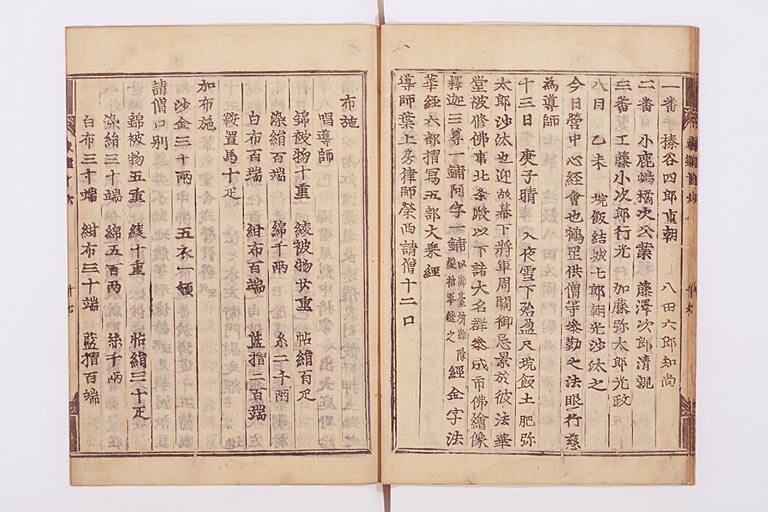 一番 榛谷四郎重朝 八田六郎知尚
二番 小鹿嶋橘次公業 藤澤次郎清親
三番 工藤小次郎行光 加藤弥太郎光政
八日 乙未 埦飯結城七郎朝光沙汰之
今日營中心經會也鶴岳供僧等參勤之法眼行慈
為導師
十三日 庚子晴 入夜雪下殆盈尺埦飯土肥弥
太郎沙汰也迎故幕下將軍周闋御忌景於彼法華
堂被修佛事北条殿以下諸大名群參成市佛繪像
釋迦三尊一鋪阿字一鋪 以御臺所御除髮被縫之 經金字法
華經六部摺寫五部大乘經
導師葉上房律師榮西請僧十二口
布施
唱導師
錦被物十重 綾被物廿重 帖絹百疋
染絹百端 綿千兩 糸二千兩
白布百端 紺布百端 藍摺二百端
鞍置馬十疋
加布施
沙金三十兩 五衣一領
請僧口別
錦被物五重 綾十重 帖絹三十疋
染絹三十端 綿五百兩 糸千兩
白布三十端 紺布三十端 藍摺百端
十七